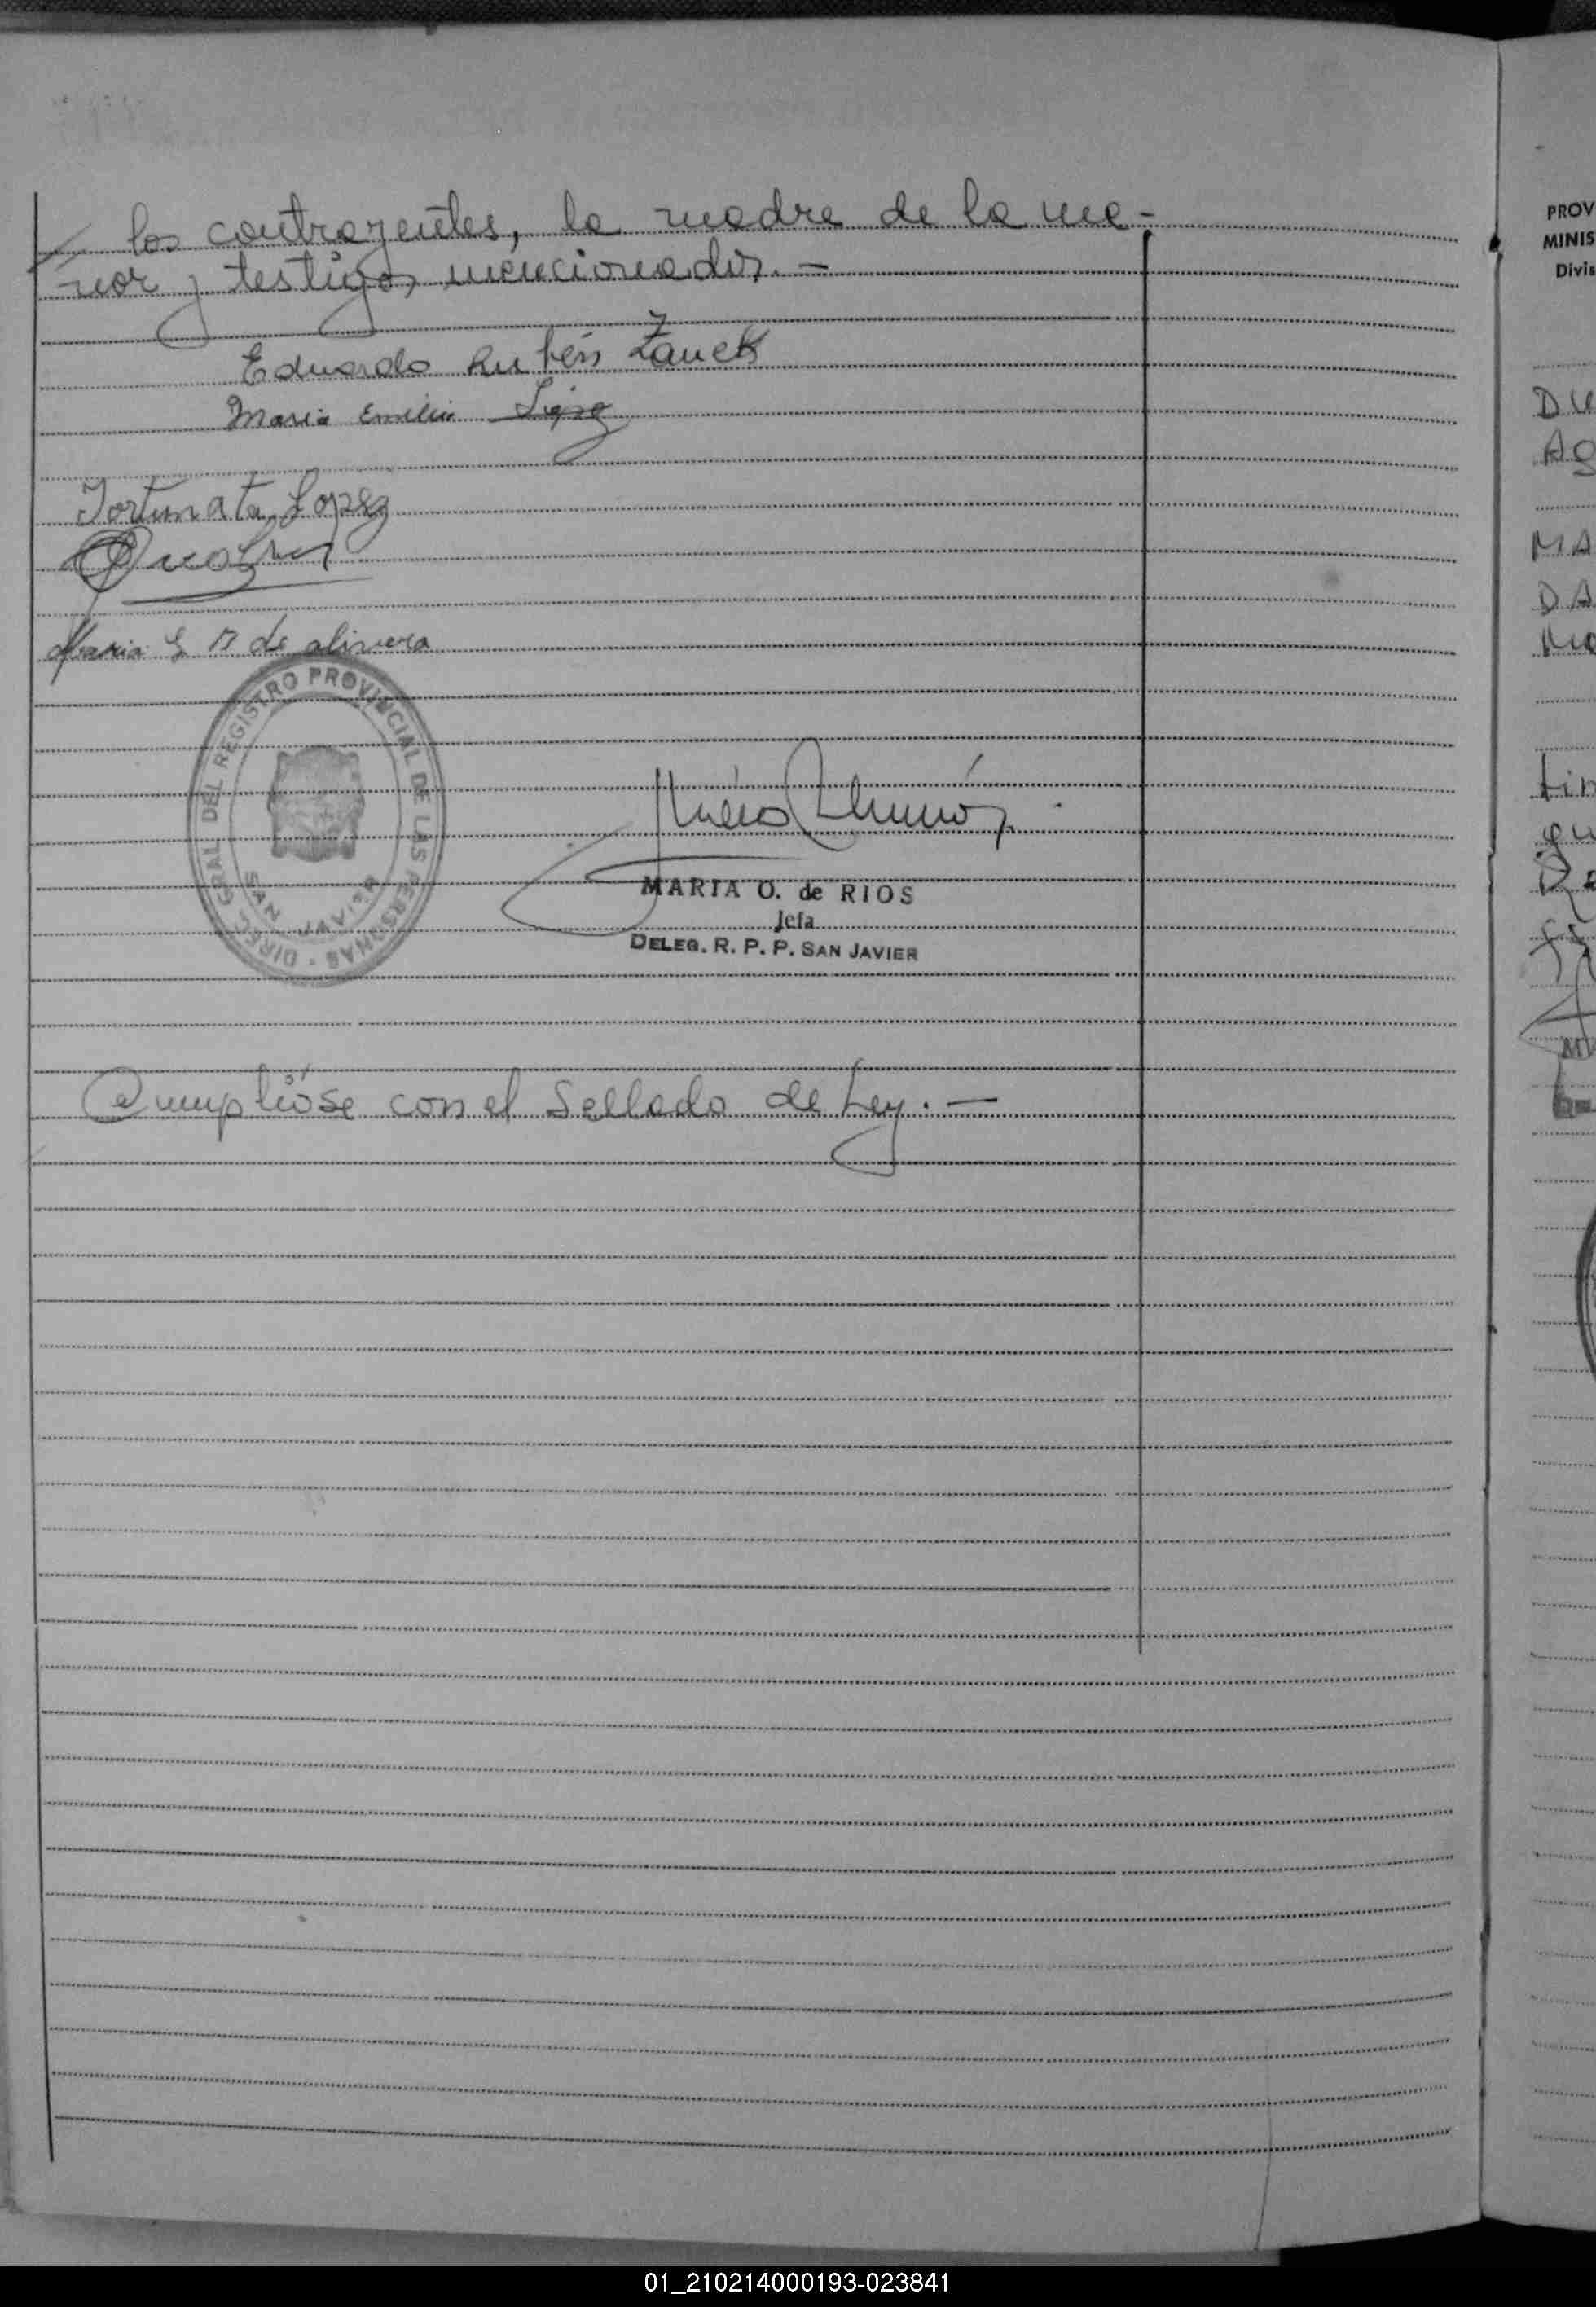 los contrayentes, la madre de la me-
nor y testigos mencionados. —
Eduardo Rubén Zauck
Maria Emilia López
Fortunata Lopez
Maria G de olivera
DIREC. GRAL. DEL REGISTRO PROVINCIAL DE LAS PERSONAS
SAN JAVIER
MARIA O. de RIOS
Jefa
DELEG. R. P. P. SAN JAVIER
Cumplióse con el Sellado de Ley. —
PROV
MINIS
Divis
DU
AG
MA
DA
tin
gu
01_210214000193-023841